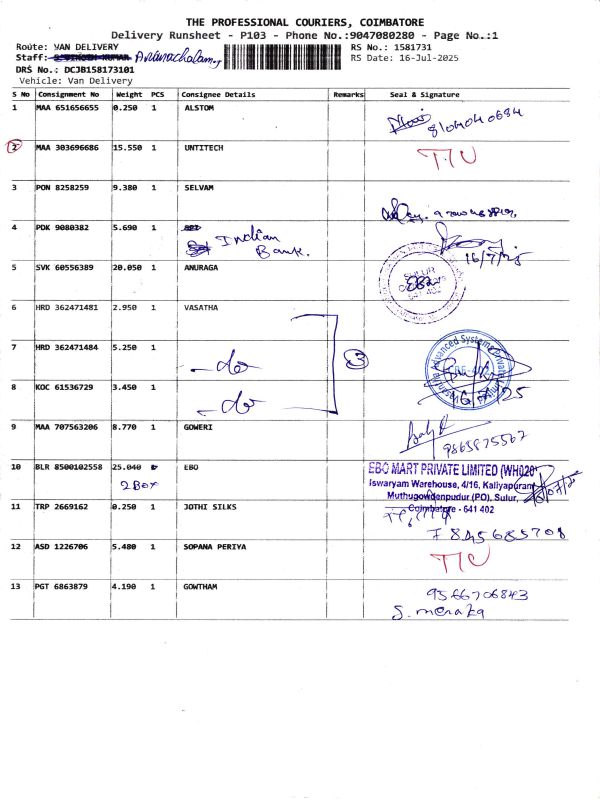 THE PROFESSIONAL COURIERS, COIMBATORE
Delivery Runsheet - P103 - Phone No.:9047080280 - Page No.:1
Route: VAN DELIVERY RS No.: 1581731
Staff: Arunachalam RS Date: 16-Jul-2025
DRS No.: DCJB158173101
Vehicle: Van Delivery
S No Consignment No Weight PCS Consignee Details Remarks Seal & Signature
1 MAA 651656655 0.250 1 ALSTOM
2 MAA 303696686 15.550 1 UNTITECH T/U
3 PON 8258259 9.380 1 SELVAM
4 PDK 9080382 5.690 1 Indian Bank. 16/7/25
5 SVK 60556389 20.050 1 ANURAGA SULUR
6 HRD 362471481 2.950 1 VASATHA
7 HRD 362471484 5.250 1 -do 3
8 KOC 61536729 3.450 1 -do
9 MAA 707563206 8.770 1 GOWERI 9865875567
10 BLR 8500102558 25.040 EBO
2 Box
EBO MART PRIVATE LIMITED (WH020)
Iswaryam Warehouse, 4/16, Kaliyapuram
Muthugowdenpudur (PO), Sulur,
Coimbatore - 641 402
11 TRP 2669162 0.250 1 JOTHI SILKS 7845685708
12 ASD 1226706 5.480 1 SOPANA PERIYA T/U
13 PGT 6863879 4.190 1 GOWTHAM 9566706843
S. menaka